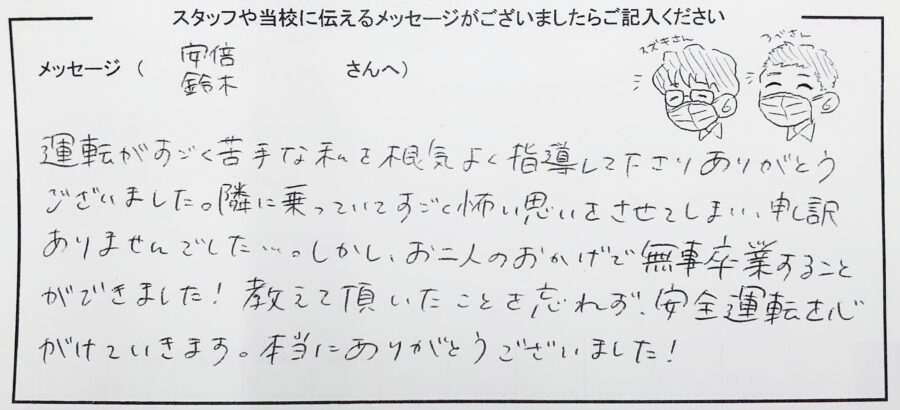 スタッフや当校に伝えるメッセージがございましたらご記入ください
メッセージ （ 安倍 鈴木 さんへ）
スズキさん
つべさん
運転がすごく苦手な私を根気よく指導してださりありがとう
ございました。隣に乗っていてすごく怖い思いをさせてしまい、申し訳
ありませんでした…。しかし、お二人のおかげで無事卒業すること
ができました！教えて頂いたことを忘れず、安全運転を心
がけていきます。本当にありがとうございました！